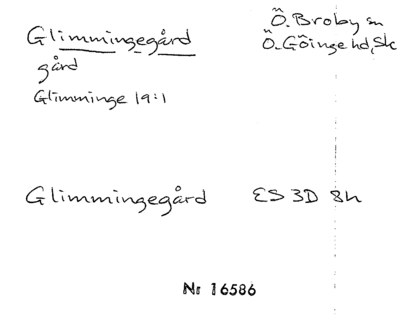 Glimmingegård Ö. Broby sn
Ö. Göinge hd, Sk
gård
Glimminge 19:1
Glimmingegård ES 3D 8h
Nr 16586